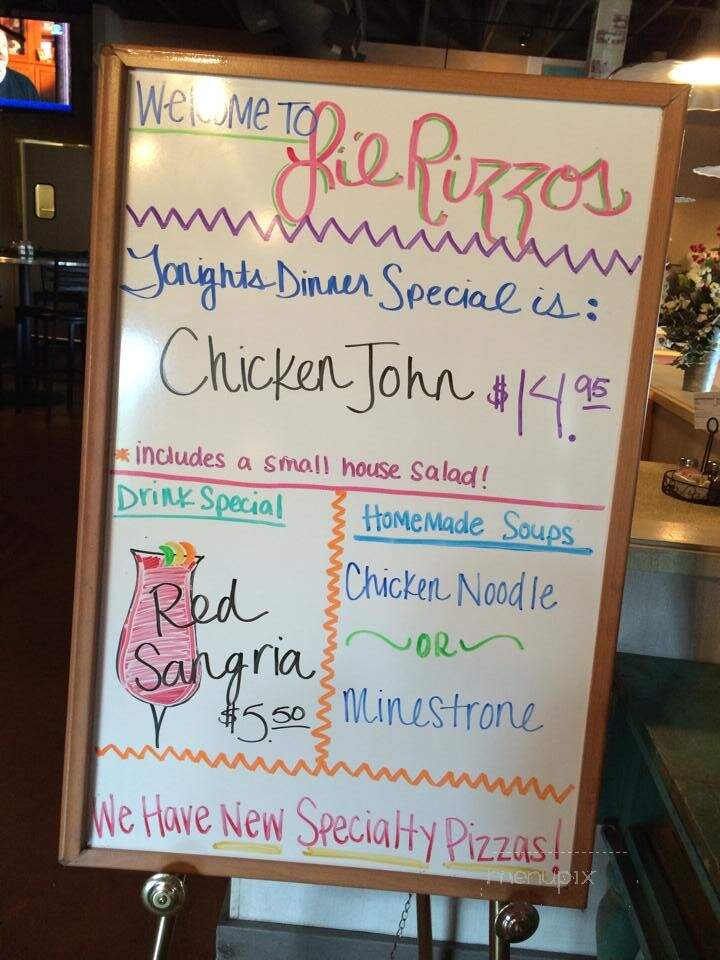 Welcome To
Lil Rizzos
Tonights Dinner Special is:
Chicken John $14.95
*includes a small house salad!
Drink Special
Red
Sangria
$5.50
HomeMade Soups
Chicken Noodle
OR
Minestrone
We Have New Specialty Pizzas!
menupix